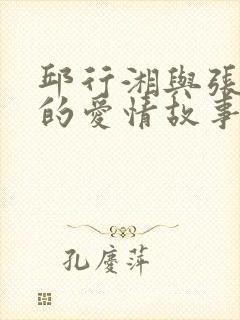 邱行湘與張
的愛情故事
孔慶萍